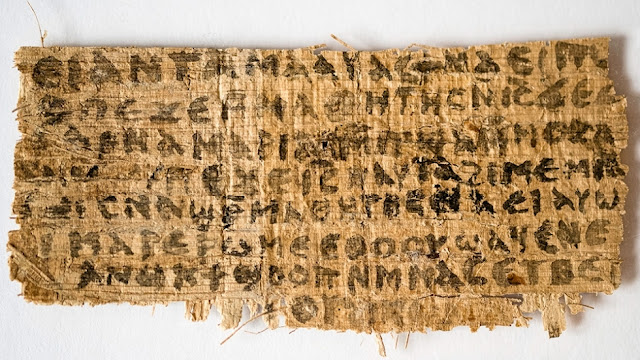 ⲉⲓ ⲁⲛ ⲧⲁⲙⲁⲁⲩ ⲁⲥϯ ⲛⲁⲉⲓ ⲡⲱ
ⲡⲉϫⲉ ⲙⲙⲁⲑⲏⲧⲏⲥ ⲛⲓⲥ ϫⲉ ⲥ
ⲁⲣⲛⲁ ⲙⲁⲣⲓⲁⲙ ⲙⲡϣⲁ ⲙⲙⲟⲥ ⲁ
ⲡⲉϫⲉ ⲓⲥ ⲛⲁⲩ ⲧⲁϩⲓⲙⲉ ⲙⲛ
ⲥⲛⲁϣⲣ ⲙⲁⲑⲏⲧⲏⲥ ⲛⲁⲉⲓ ⲁⲩⲱ
ⲓ ⲙⲁⲣⲉⲣⲱⲙⲉ ⲉⲑⲟⲟⲩ ϣⲁϥⲉ ⲛⲉ
ⲁⲛⲟⲕ ϯϣⲟⲟⲡ ⲛⲙⲙⲁⲥ ⲉⲧⲃⲉ ⲡ